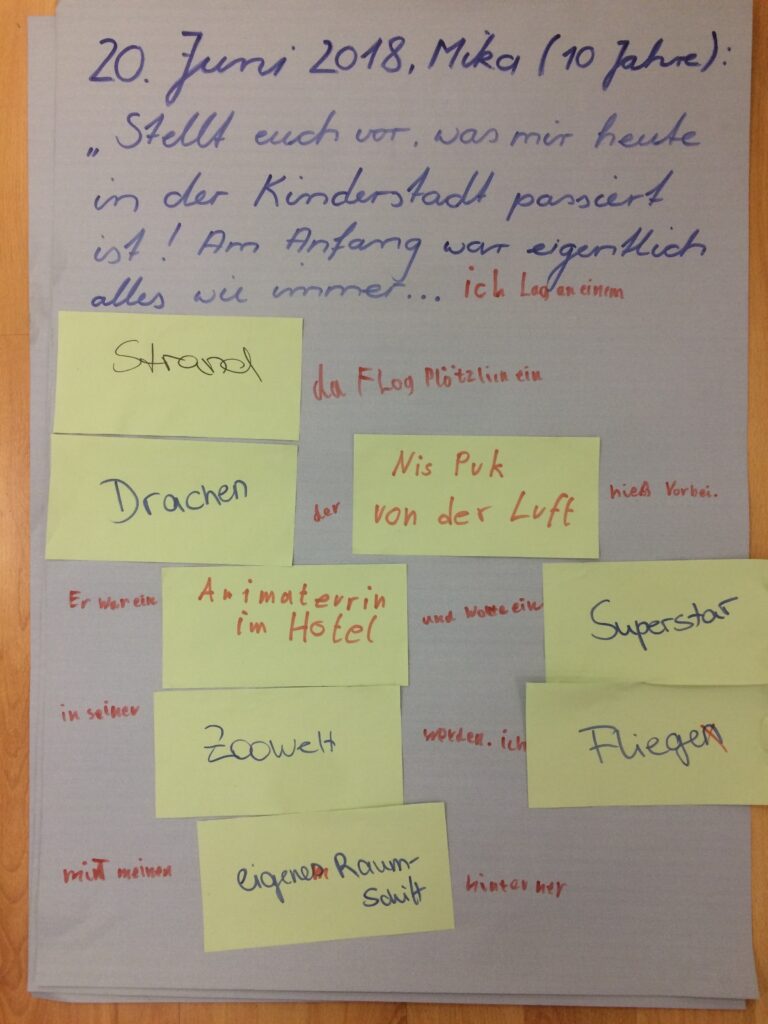 20. Juni 2018, Mika (10 Jahre):
„Stellt euch vor, was mir heute
in der Kinderstadt passiert
ist! Am Anfang war eigentlich
alles wie immer... ich Lag an einem
Strand da FLog PLötzlich ein
Drachen der Nis Puk
von der Luft hieß Vorbei.
Er war ein Animaterrin
im Hotel und wollte ein Superstar
in seiner Zoowelt werden. ich Fliege
mit meinen eigenem Raum-
schiff hinterher